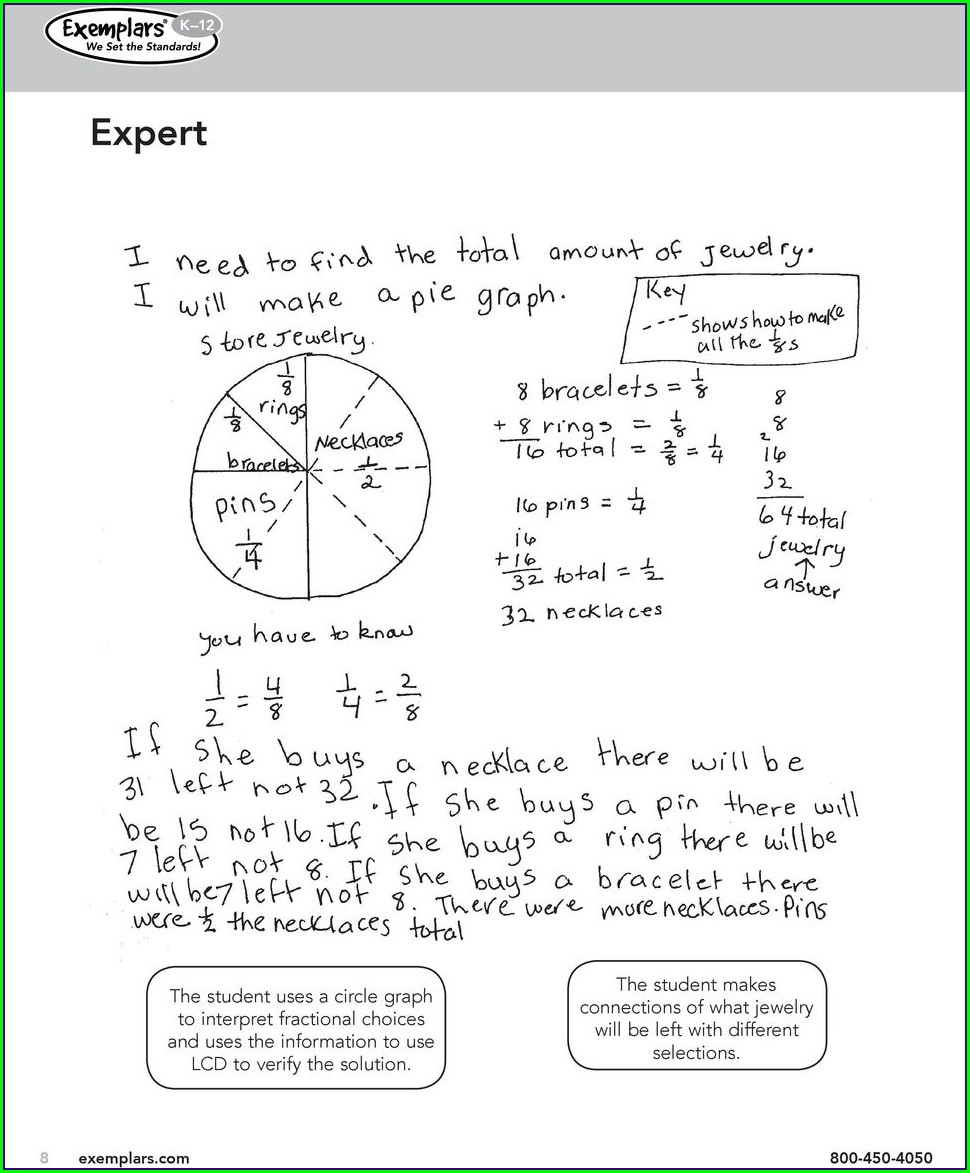 Exemplars® K–12
We Set the Standards!
Expert
I need to find the total amount of jewelry.
I will make a pie graph.
Key
---- shows how to make
all the 1/8s
Store Jewelry.
1/8
rings
1/8
bracelets
Necklaces
1/2
pins
1/4
8 bracelets = 1/8
+ 8 rings = 1/8
16 total = 2/8 = 1/4
16 pins = 1/4
16
+16
32 total = 1/2
32 necklaces
8
8
2
16
32
64 total
jewelry
↑
answer
you have to know
1/2 = 4/8 1/4 = 2/8
If she buys a necklace there will be
31 left not 32. If she buys a pin there will
be 15 not 16. If she buys a ring there will be
7 left not 8. If she buys a bracelet there
will be 7 left not 8. There were more necklaces. Pins
were 1/2 the necklaces total
The student uses a circle graph
to interpret fractional choices
and uses the information to use
LCD to verify the solution.
The student makes
connections of what jewelry
will be left with different
selections.
8 exemplars.com 800-450-4050